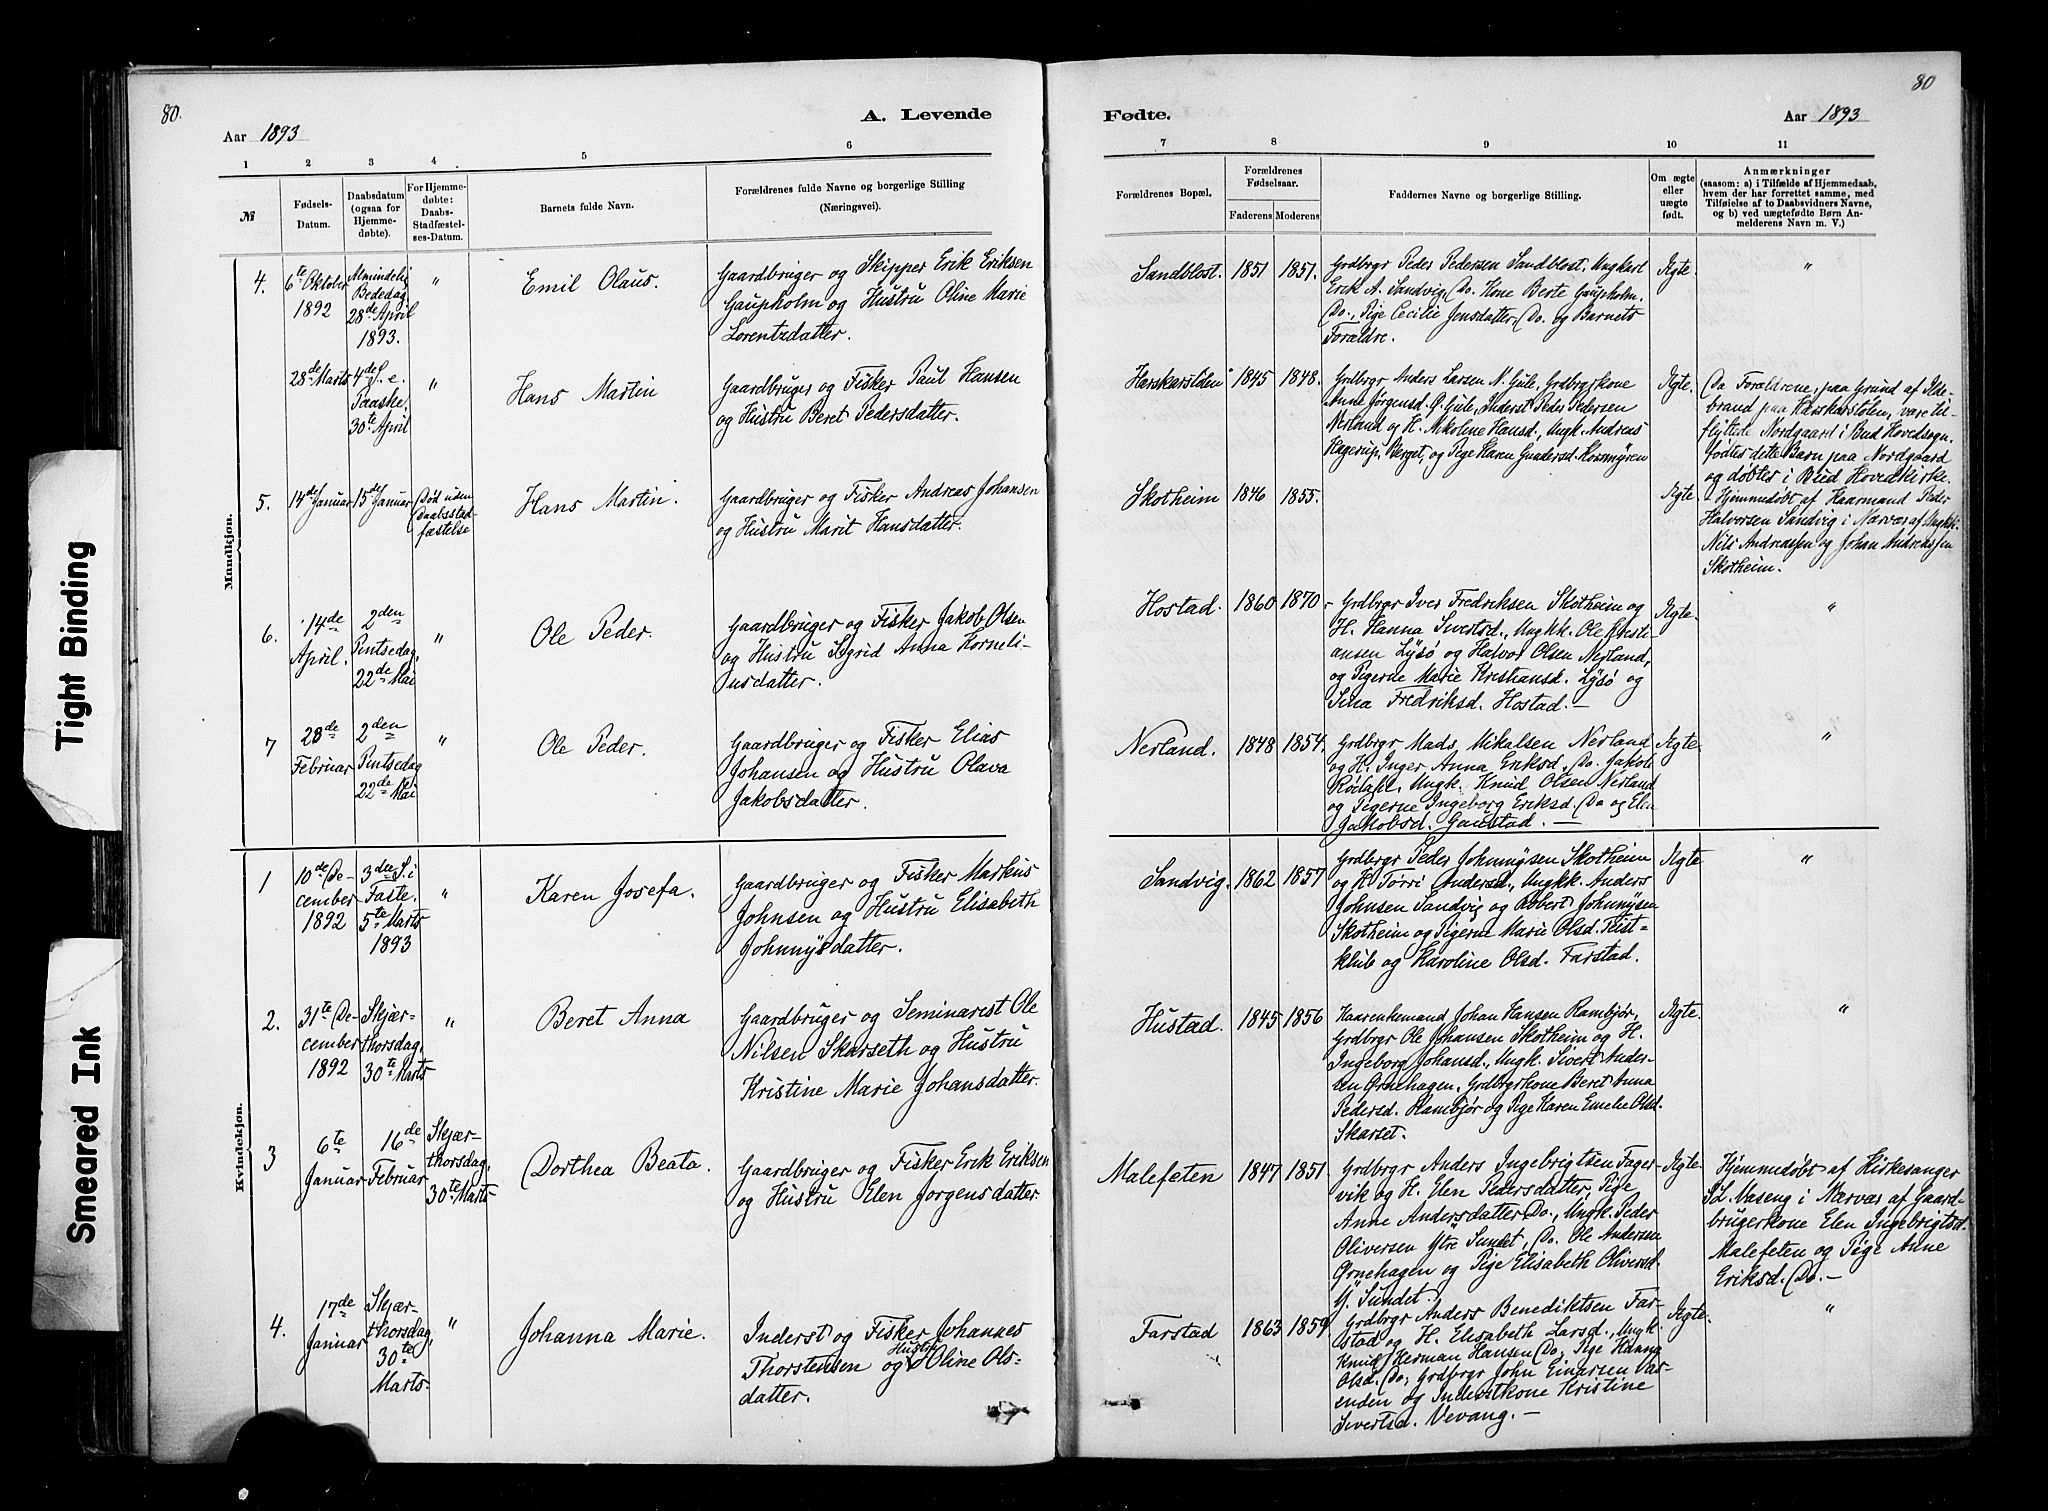 80.
80
A. Levende
Fødte.
Aar 1893
Aar 1893
1 2 3 4 5 6
7 8 9 10 11
№
Fødsels-
Datum.
Daabsdatum
(ogsaa for
Hjemme-
døbte).
For Hjemme-
døbte:
Daabs-
Stadfæstel-
ses-Datum.
Barnets fulde Navn.
Forældrenes fulde Navne og borgerlige Stilling
(Næringsvei).
Forældrenes Bopæl.
Forældrenes
Fødselsaar.
Faderens
Moderens
Faddernes Navne og borgerlige Stilling.
Om ægte
eller
uægte
født.
Anmærkninger
(saasom: a) i Tilfælde af Hjemmedaab,
hvem der har forrettet samme, med
Tilføielse af to Daabsvidners Navne,
og b) ved uægtefødte Børn An-
melderens Navn m. V.)
Mandkjøn.
4.
6te Oktober
1892
Almindelig
Bededag
28de April
1893.
"
Emil Olaus.
Gaardbruger og Skipper Erik Eriksen
Gaupholm og Hustru Oline Marie
Lorentzdatter.
Sandblost.
1851
1851.
Grdbrgr Peder Pedersen Sandblost, Ungkarl
Erik A. Sandvig, Do. Kone Berte Gaupholm.
Do., Pige Cecilie Jensdatter, Do. og Barnets
Forældre.
Ægte.
"
28de Marts
4de S. e.
Paaske
30te April
"
Hans Martin
Gaardbruger og Fisker Paul Hansen
og Hustru Beret Pedersdatter.
Harskarstolen
1845
1848.
Grdbrgr Anders Larsen N. Gule, Grdbrgrkone
Anne Jørgensd. Ø. Gule, Inderst Peder Pedersen
Nerland og H. Nikoline Hansd., Ungk. Andreas
Hagerup, Berget, og Pige Karen Gundersd. Kornmyren
Ægte.
Da Forældrene, paa Grund af Ilde-
brand paa Harskarstolen, vare til-
flyttede Nordgaard i Bud Hovedsogn,
fødtes dette Barn paa Nordgaard
og døbtes i Bud Hovedkirke.
5.
14de Januar
15de Januar
Død uden
Daabsstad-
fæstelse
Hans Martin.
Gaardbruger og Fisker Andreas Johansen
og Hustru Marit Hansdatter.
Skotheim
1846
1855.
Ægte
Hjemmedøbt af Kaarmand Peder
Halvorsen Sandvig i Nærvær af Ungkk.
Nils Andreassen og Johan Andreassen
Skotheim.
6.
14de
April.
2den
Pintsedag,
22de Mai
"
Ole Peder.
Gaardbruger og Fisker Jakob Olsen
og Hustru Sigrid Anna Korneli-
usdatter.
Hostad.
1860
1870
Grdbrgr Iver Fredriksen Skotheim og
H. Hanna Sivertsd., Ungkk. Ole Kristi-
ansen Lysø og Halvor Olsen Nerland,
og Pigerne Marie Kristiansd. Lysø og
Sina Fredriksd. Hostad. —
Ægte.
"
7
28de
Februar
2den
Pintsedag
22de Mai
"
Ole Peder.
Gaardbruger og Fisker Elias
Johansen og Hustru Olava
Jakobsdatter.
Nerland.
1848
1854.
Grdbrgr Mads Mikalsen Nerland
og H. Inger Anna Eriksd., Do. Jakob
Ungk. Knud Olsen Nerland
og Pigerne Ingeborg Eriksd. Do og Elen
Jakobsd. Gaustad. —
Ægte.
"
Kvindekjøn.
1
10de De-
cember
1892
3die S. i
Faste.
5te Marts
1893
"
Karen Josefa.
Gaardbruger og Fisker Markus
Johnsen og Hustru Elisabeth
Johnnysdatter.
Sandvig.
1862
1857
Grdbrgr Peder Johnnysen Skotheim
og H. Torri Andersd., Ungkk. Anders
Johnsen Sandvig og Robert Johnnysen
Skotheim og Pigerne Marie Olsd. Teist-
klub og Karoline Olsd. Farstad.
Ægte
"
2.
31te De-
cember
1892
Skjær-
thorsdag,
30te Marts
"
Beret Anna
Gaardbruger og Seminarist Ole
Nilsen Skarseth og Hustru
Kristine Marie Johansdatter.
Hustad.
1845
1856
Kaarenkemand Johan Hansen Rambjør,
Grdbrgr Ole Johansen Skotheim og H.
Ingeborg Johansd., Ungk. Sivert Ander-
sen Ørnehagen, Grdbrgrkone Beret Anna
Pedersd. Rambjør og Pige Karen Emelie Olsd.
Skarset.
Ægte.
"
3
6te
Januar
16de
Februar
Skjær-
thorsdag,
30te Marts
Dorthea Beata.
Gaardbruger og Fisker Erik Eriksen
og Hustru Elen Jorgensdatter
Malefeten
1847
1851
Grdbrgr Anders Ingebrigtsen Fager-
vik og H. Elen Pedersdatter, Pige
Anne Andersdatter Do., Ungk. Peder
Oliversen Ytre Sundet, Do. Ole Andersen
Ørnehagen og Pige Elisabeth Oliversd.
Y. Sundet.
Ægte
Hjemmedøbt af Kirkesanger
Vaseng i Nærvær af Gaard-
brugerkone Elen Ingebrigtsd.
Malefeten og Pige Anne
Eriksd. Do. —
4.
17de
Januar
Skjær-
thorsdag,
30te
Marts
"
Johanna Marie.
Inderst og Fisker Johannes
Thorstensen og Hustru Oline Ols-
datter.
Farstad
1863
1859
Grdbrgr Anders Benediktsen Far-
stad og H. Elisabeth Larsd., Ungk.
Knud Herman Hansen Do; Pige
Olsd. Do; Grdbrgr John Einarsen Vas-
enden og Inderstkone Kristine
Sivertsd. Vevang. —
Ægte.
"
Tight Binding
Smeared Ink